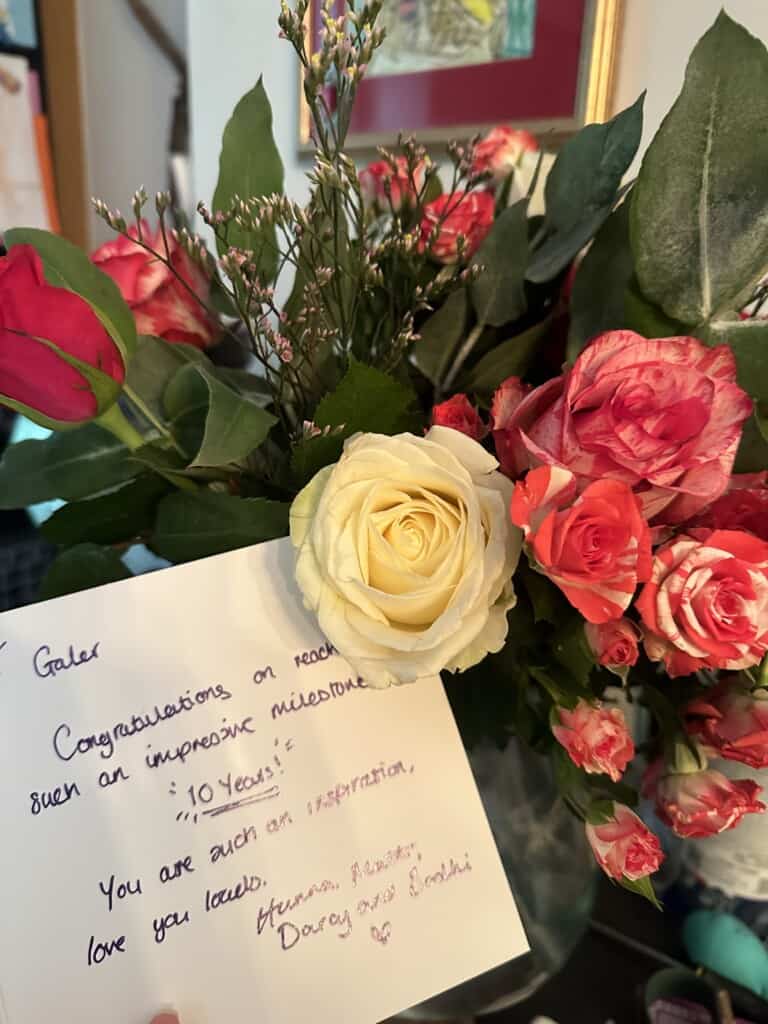 Galer
Congratulations on reach
such an impressive milestone
"10 Years!"
You are such an inspiration,
love you loads.
Darcy and Bodhi